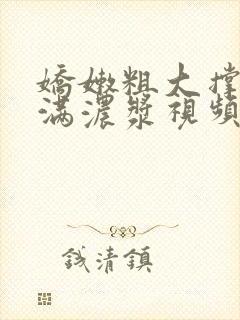 嬌嫩粗大撐
滿濃漿視頻
錢清鎮